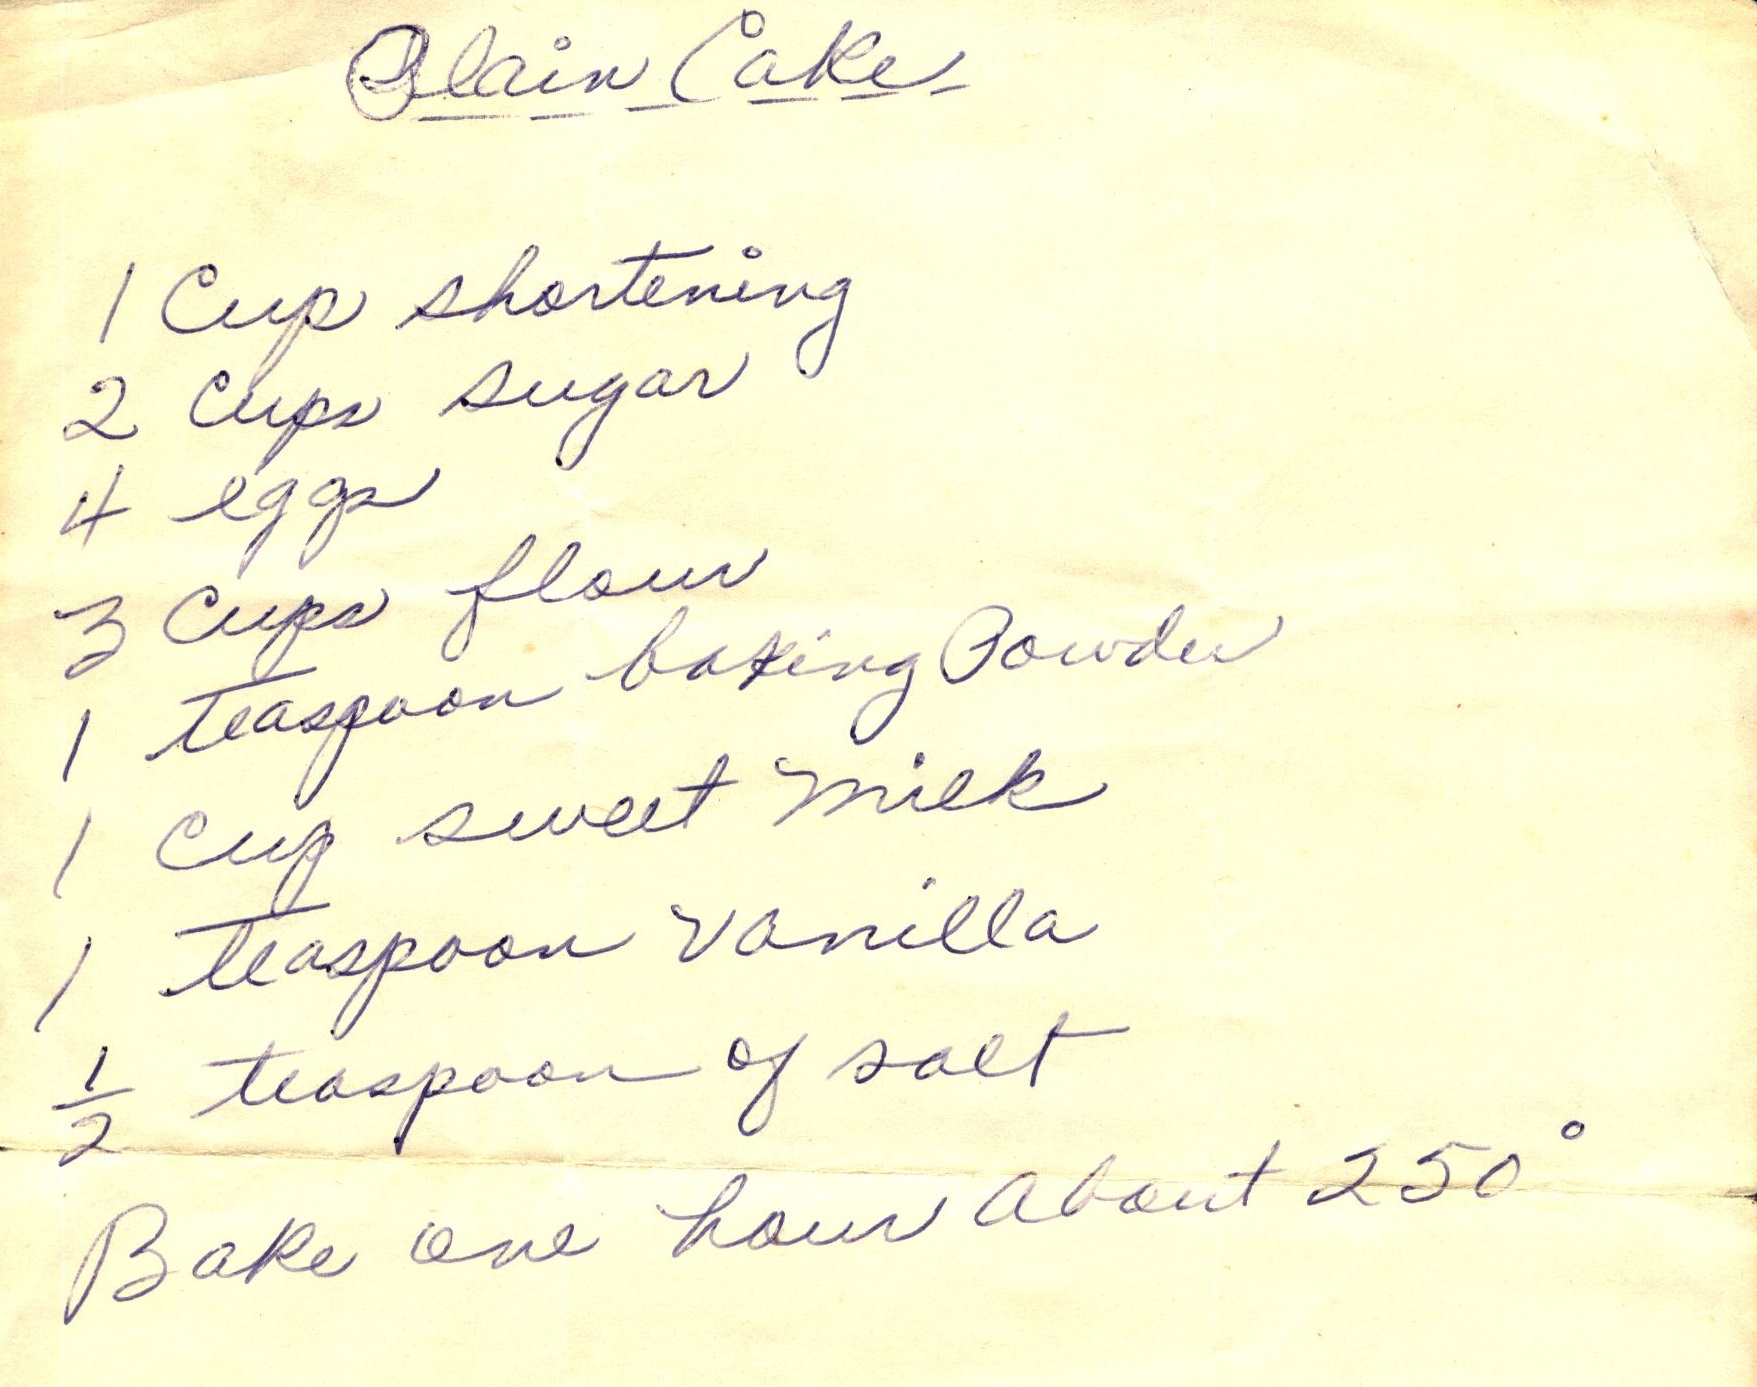 Plain Cake
1 Cup shortening
2 Cups sugar
4 eggs
3 Cups flour
1 teaspoon baking Powder
1 Cup sweet milk
1 teaspoon vanilla
1/2 teaspoon of salt
Bake one hour about 250°